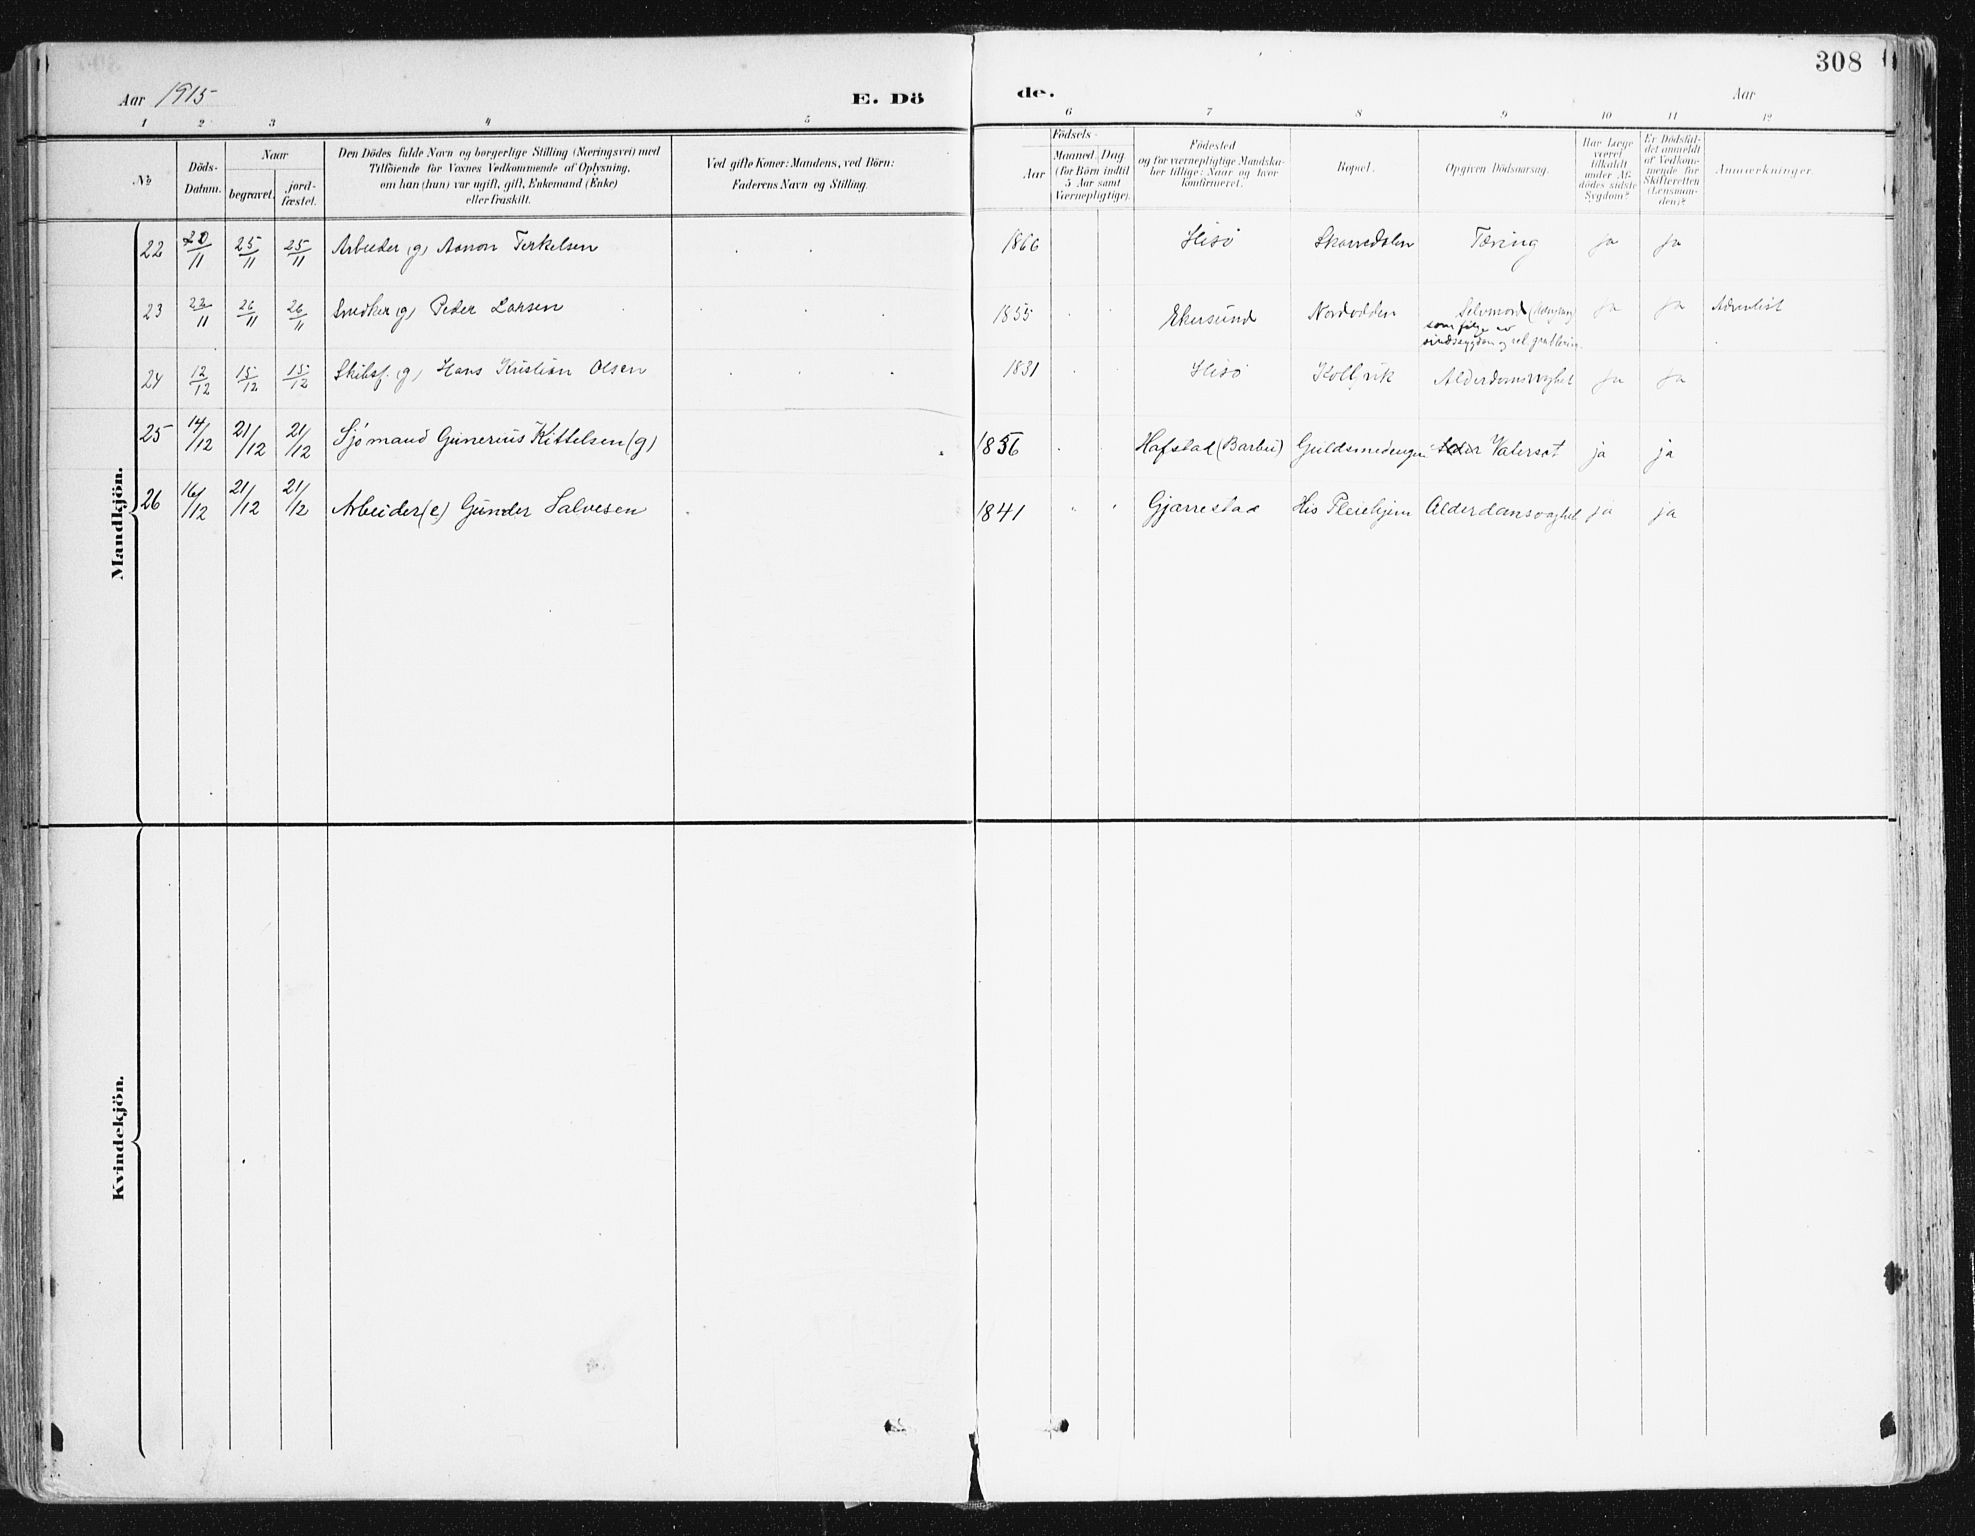 308
Aar 1915 E. Dö de. Aar
1 2 3 4 5 6 7 8 9 10 11 12
No
Döds-
Datum.
Naar
begravet.
jord-
fæstet.
Den Dödes fulde Navn og borgerlige Stilling (Næringsvei) med
Tilföiende for Voxnes Vedkommende af Oplysning,
om han (hun) var ugift, gift, Enkemand (Enke)
eller fraskilt.
Ved gifte Koner: Mandens, ved Börn:
Faderens Navn og Stilling.
Födsels-
Aar
Maaned. Dag
(for Börn indtil
5 Aar samt
Værnepligtige).
Födested
og for værnepligtige Mandska-
ber tillige: Naar og hvor
konfirmeret.
Bopæl.
Opgiven Dödsaarsag.
Har Læge
været
tilkaldt
under Af-
dödes sidste
Sygdom?
Er Dödsfal-
det anmeldt
af Vedkom-
mende for
Skifteretten
(Lensman-
den)?
Anmærkninger.
Mandkjön.
22 20/11 25/11 25/11 Arbeider (g) Aanon Terkelsen 1866 Hisö Skarredalen Tæring ja ja
23 22/11 26/11 26/11 Snedker (g) Peder Larsen 1855 Ekersund Nordodden Selvmord ja ja Adventist
som følge av
sindssygdom og rel.
24 12/12 15/12 15/12 Skibsf. (g) Hans Kristian Olsen 1831 Hisö Kolbjvik Alderdomssvaghet ja ja
25 14/12 21/12 21/12 Sjömand Gunerius Kittelsen (g) 1856 Hafstad (Barbu) Guldsmedengen Vatersot ja ja
26 16/12 21/12 21/12 Arbeider (e) Gunder Salvesen 1841 Gjærrestad His Pleiehjem Alderdomssvaghet ja ja
Kvindekjön.